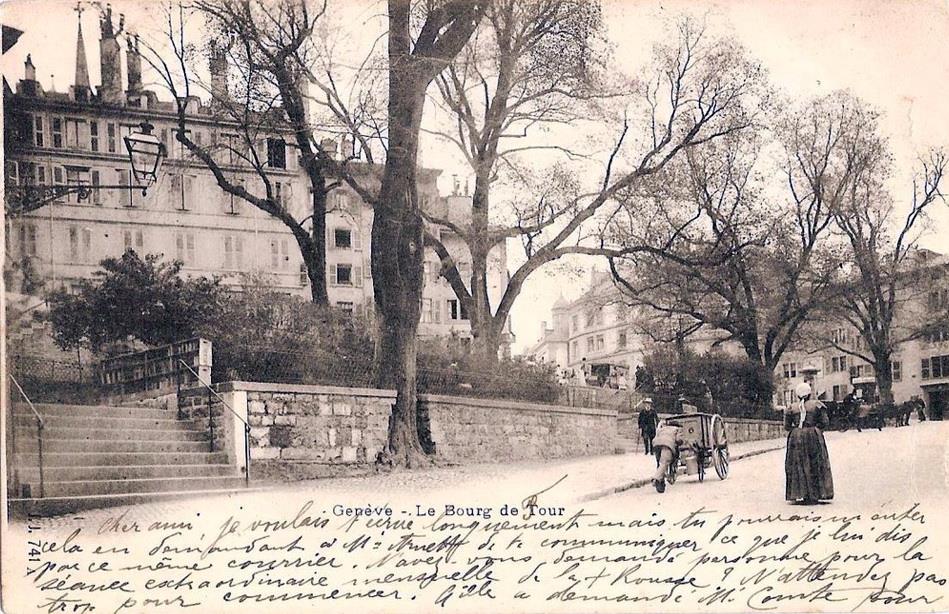 Genève - Le Bourg de Four
J.J. 741 A
Cher ami je voulais t'écrire longuement mais tu pourrais m'éviter
cela en demandant à Mr de te communiquer ce que je lui dis
par ce même courrier. N'avez-vous demandé personne pour la
séance extraordinaire mensuelle de la + Rousse ? N'attendez pas
trop pour commencer. a demandé M. Comte pour